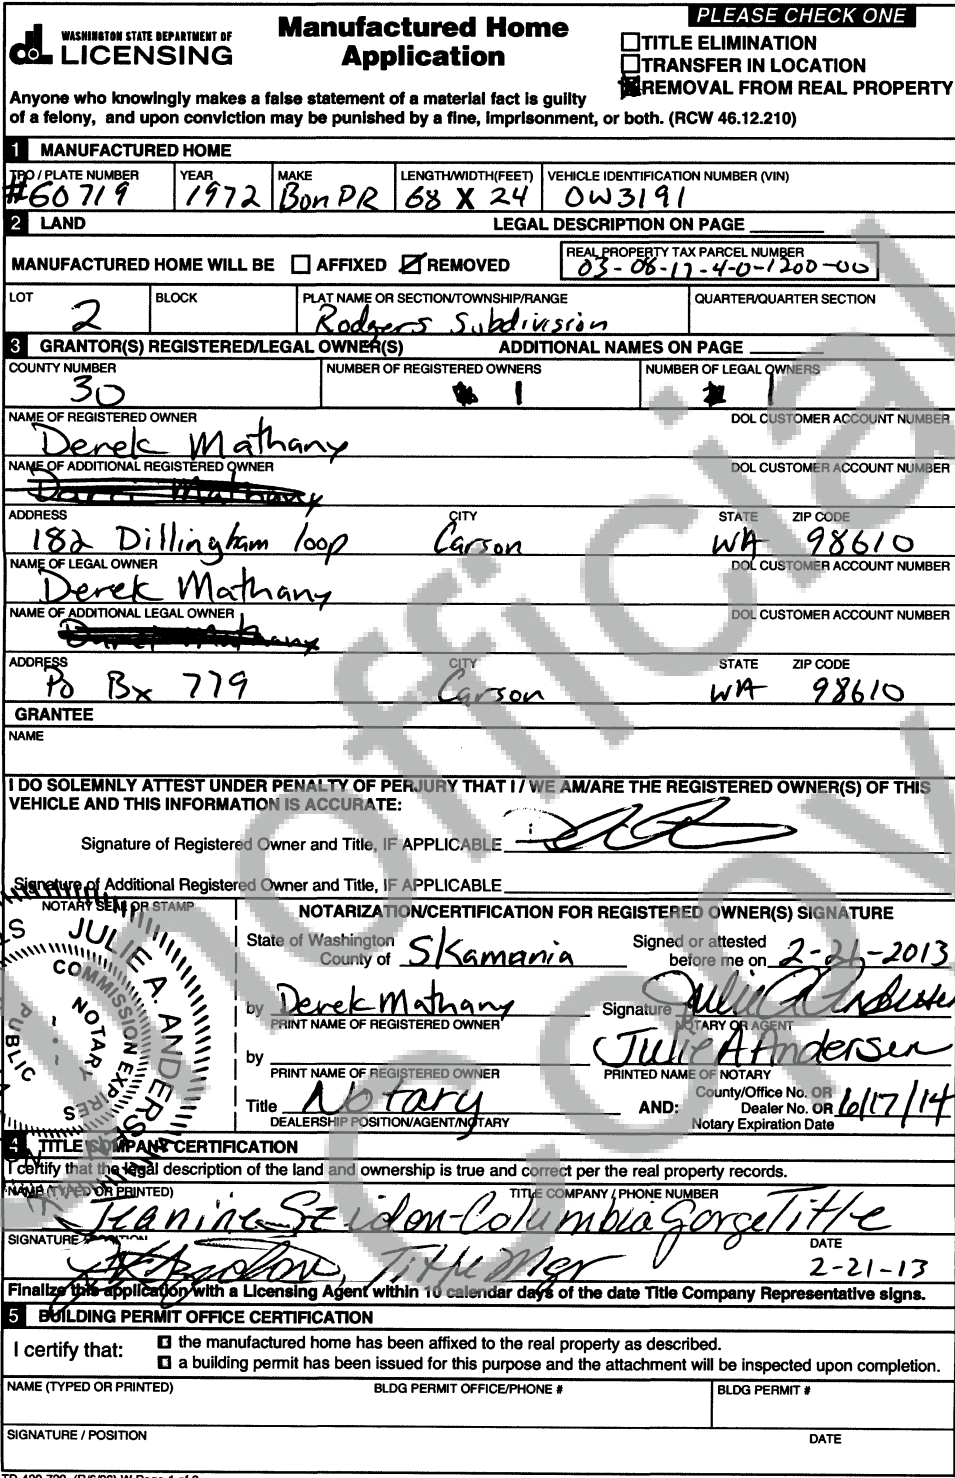 WASHINGTON STATE DEPARTMENT OF
LICENSING
Manufactured Home
Application
PLEASE CHECK ONE
TITLE ELIMINATION
TRANSFER IN LOCATION
REMOVAL FROM REAL PROPERTY
Anyone who knowingly makes a false statement of a material fact is guilty
of a felony, and upon conviction may be punished by a fine, imprisonment, or both. (RCW 46.12.210)
1 MANUFACTURED HOME
TPO / PLATE NUMBER YEAR MAKE LENGTH/WIDTH(FEET) VEHICLE IDENTIFICATION NUMBER (VIN)
#60719 1972 Bon PR 68 X 24 0W3191
2 LAND LEGAL DESCRIPTION ON PAGE
MANUFACTURED HOME WILL BE AFFIXED REMOVED
REAL PROPERTY TAX PARCEL NUMBER
03-08-17-4-0-1200-00
LOT BLOCK PLAT NAME OR SECTION/TOWNSHIP/RANGE QUARTER/QUARTER SECTION
2 Rodgers Subdivision
3 GRANTOR(S) REGISTERED/LEGAL OWNER(S) ADDITIONAL NAMES ON PAGE
COUNTY NUMBER NUMBER OF REGISTERED OWNERS NUMBER OF LEGAL OWNERS
30 1 1
NAME OF REGISTERED OWNER DOL CUSTOMER ACCOUNT NUMBER
Derek Mathany
NAME OF ADDITIONAL REGISTERED OWNER DOL CUSTOMER ACCOUNT NUMBER
Mathany
ADDRESS CITY STATE ZIP CODE
182 Dillingham loop Carson WA 98610
NAME OF LEGAL OWNER DOL CUSTOMER ACCOUNT NUMBER
Derek Mathany
NAME OF ADDITIONAL LEGAL OWNER DOL CUSTOMER ACCOUNT NUMBER
Mathany
ADDRESS CITY STATE ZIP CODE
Po Bx 779 Carson WA 98610
GRANTEE
NAME
I DO SOLEMNLY ATTEST UNDER PENALTY OF PERJURY THAT I / WE AM/ARE THE REGISTERED OWNER(S) OF THIS
VEHICLE AND THIS INFORMATION IS ACCURATE:
Signature of Registered Owner and Title, IF APPLICABLE
Signature of Additional Registered Owner and Title, IF APPLICABLE
NOTARY SEAL OR STAMP
JULIE A. ANDERSEN
COMMISSION EXPIRES
NOTARY
PUBLIC
NOTARIZATION/CERTIFICATION FOR REGISTERED OWNER(S) SIGNATURE
State of Washington
County of Skamania
Signed or attested
before me on 2-21-2013
by Derek Mathany Signature Julie A Andersen
PRINT NAME OF REGISTERED OWNER NOTARY OR AGENT
by Julie A Andersen
PRINT NAME OF REGISTERED OWNER PRINTED NAME OF NOTARY
Title Notary AND: County/Office No. OR
Dealer No. OR 6/17/14
DEALERSHIP POSITION/AGENT/NOTARY Notary Expiration Date
4 TITLE COMPANY CERTIFICATION
I certify that the legal description of the land and ownership is true and correct per the real property records.
NAME (TYPED OR PRINTED) TITLE COMPANY / PHONE NUMBER
Jeanine Szidon-Columbia Gorge Title
SIGNATURE / POSITION DATE
Title Mgr 2-21-13
Finalize this application with a Licensing Agent within 10 calendar days of the date Title Company Representative signs.
5 BUILDING PERMIT OFFICE CERTIFICATION
I certify that: the manufactured home has been affixed to the real property as described.
a building permit has been issued for this purpose and the attachment will be inspected upon completion.
NAME (TYPED OR PRINTED) BLDG PERMIT OFFICE/PHONE # BLDG PERMIT #
SIGNATURE / POSITION DATE
Unofficial
Copy